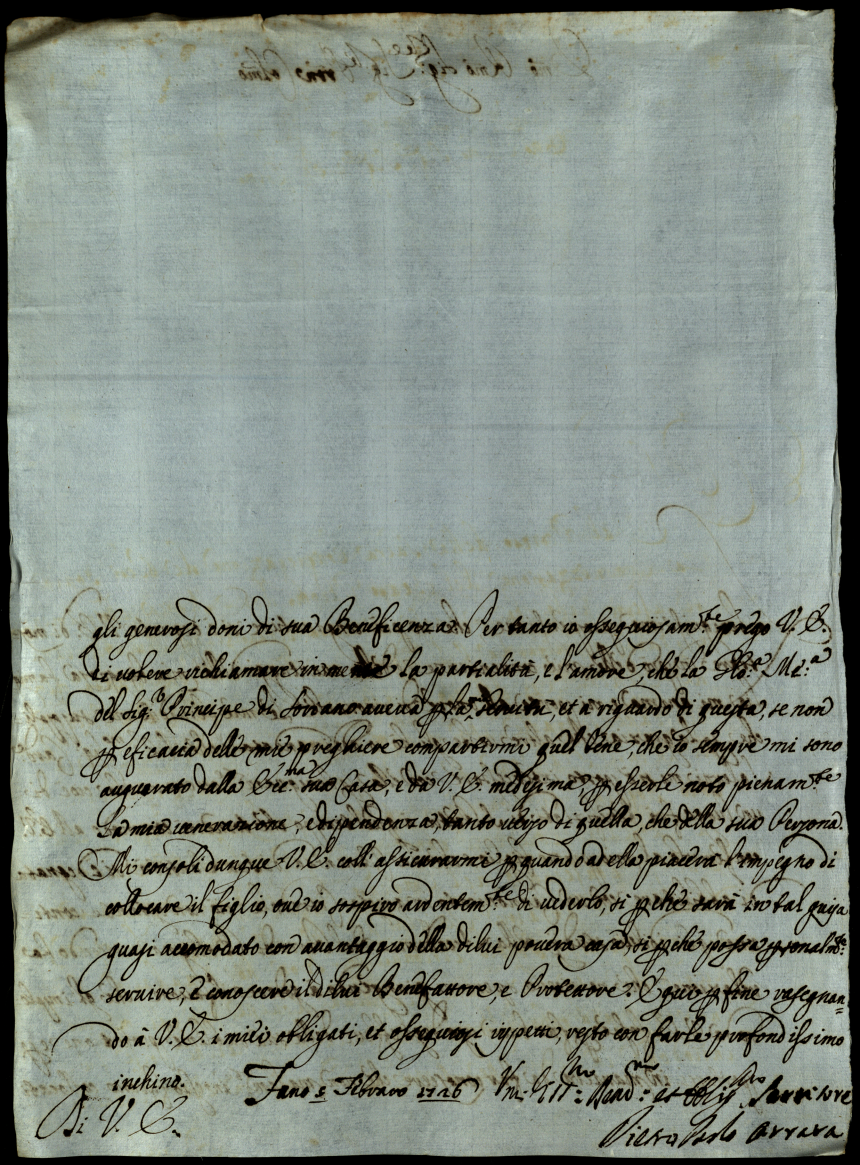 gli generosi doni di sua Beneficenza. Per tanto io ossequiosam.te prego V. E.
di volere richiamare in mente la partialità, e l'amore, che la Glo.a Me.a
del Sig.r Principe di Soriano aveva p la servitù, et a riguardo di questa, se non
p eficacia delle mie preghiere compartirmi quel bene, che io sempre mi sono
augurato dalla Ecc.ma sua Casa, e da V. E. medesima, p esserle noto pienam.te
la mia venerazione, e dipendenza, tanto verso di quella, che della sua Persona.
Mi consoli dunque V. E. coll'assicurarmi p quando ad ella piacerà l'impegno di
collocare il figlio, ove io sospiro ardentem.te di vederlo, si p che sarà in tal guisa
quasi accomodato con avantaggio della di lui povera casa, si p che possa p sonalm.te
servire, e conoscere il di lui Benefattore, e Protettore. E qui p fine rasegnan=
do à V. E. i miei obligati, et ossequiosi rispetti, resto con farle profondissimo
inchino.
Di V. E. Fano 5 Febraro 1726 Vm. et Servitore
Pietro Paolo